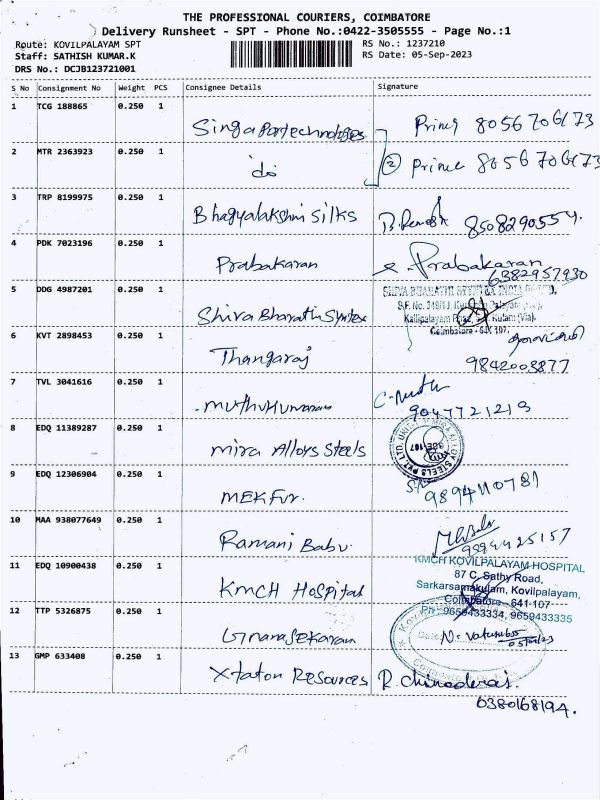 THE PROFESSIONAL COURIERS, COIMBATORE
Delivery Runsheet - SPT - Phone No.:0422-3505555 - Page No.:1
Route: KOVILPALAYAM SPT
Staff: SATHISH KUMAR.K
DRS No.: DCJB123721001
RS No.: 1237210
RS Date: 05-Sep-2023
S No Consignment No Weight PCS Consignee Details Signature
1 TCG 188865 0.250 1
Singaportechnologes Prince 8056706173
2 MTR 2363923 0.250 1
do 2 Prince 8056706173
3 TRP 8199975 0.250 1
Bhagyalakshmi Silks
4 PDK 7023196 0.250 1
Prabakaran e. Prabakaran
6382957930
5 DDG 4987201 0.250 1
Shiva Bharathi Syntex
Coimbatore - 641 107.
6 KVT 2898453 0.250 1
Thangaraj
9842003877
7 TVL 3041616 0.250 1
muthukumaran
9047721213
8 EDQ 11389287 0.250 1
mira Alloys Steels
9 EDQ 12306904 0.250 1
MEKFur.
9894110781
10 MAA 938077649 0.250 1
Ramani Babu
9894425157
11 EDQ 10900438 0.250 1
KMCH Hospital
KMCH KOVILPALAYAM HOSPITAL
87 C, Sathy Road,
Sarkarsamakulam, Kovilpalayam,
Coimbatore - 641-107
Ph: 9659433334, 9659433335
12 TTP 5326875 0.250 1
Gnanasekaran
13 GMP 633408 0.250 1
Xtaton Resources R. Chinnaderai.
6380168194.